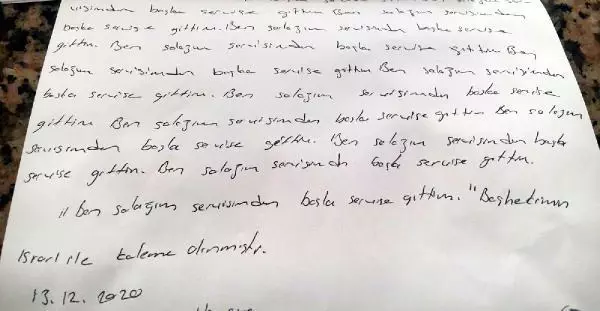 servisimden başka servise gittim Ben salağım servisimden
başka servise gittim. Ben salağım servisimden başka servise
gittim. Ben salağım servisimden başka servise gittim Ben
salağım servisimden başka servise gittim Ben salağım servisimden
başka servise gittim. Ben salağım servisimden başka servise
gittim Ben salağım servisimden başka servise gittim Ben salağım
servisimden başka servise gittim. Ben salağım servisimden başka
servise gittim. Ben salağım servisimden başka servise gittim.
Ben salağım servisimden başka servise gittim. "Başhekimin
Israrı ile kaleme alınmıştır.
13.12.2020